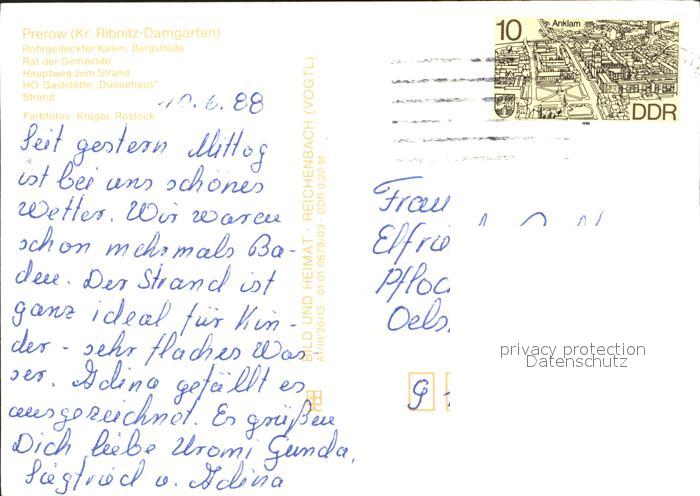 Prerow (Kr. Ribnitz-Damgarten)
Rohrgedeckter Katen, Bergstraße
Rat der Gemeinde
Hauptweg zum Strand
HO-Gaststätte „Dünenhaus"
Strand
Farbfotos: Krüger, Rostock
10.6.88
Seit gestern Mittag
ist bei uns schönes
Wetter. Wir waren
schon mehrmals Ba-
den. Der Strand ist
ganz ideal für Kin-
der - sehr flaches Was
ser. Adina gefällt es
ausgezeichnet. Es grüßen
Dich liebe Uromi Gunda,
Siegfried u. Adina
BILD UND HEIMAT · REICHENBACH (VOGTL)
A1/III/26/13 · 01 01 0679/03 · DDR 0,20 M
10
Anklam
DDR
Frau
Elfrie
Pfloc
Oels
privacy protection
Datenschutz
9